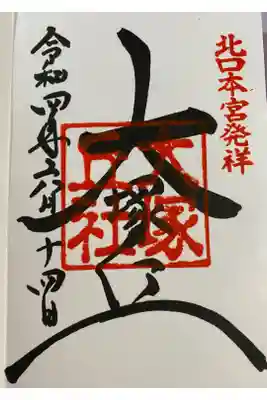 北口本宮発祥
大塚丘
大塚
丘社
令和四年六月十四日